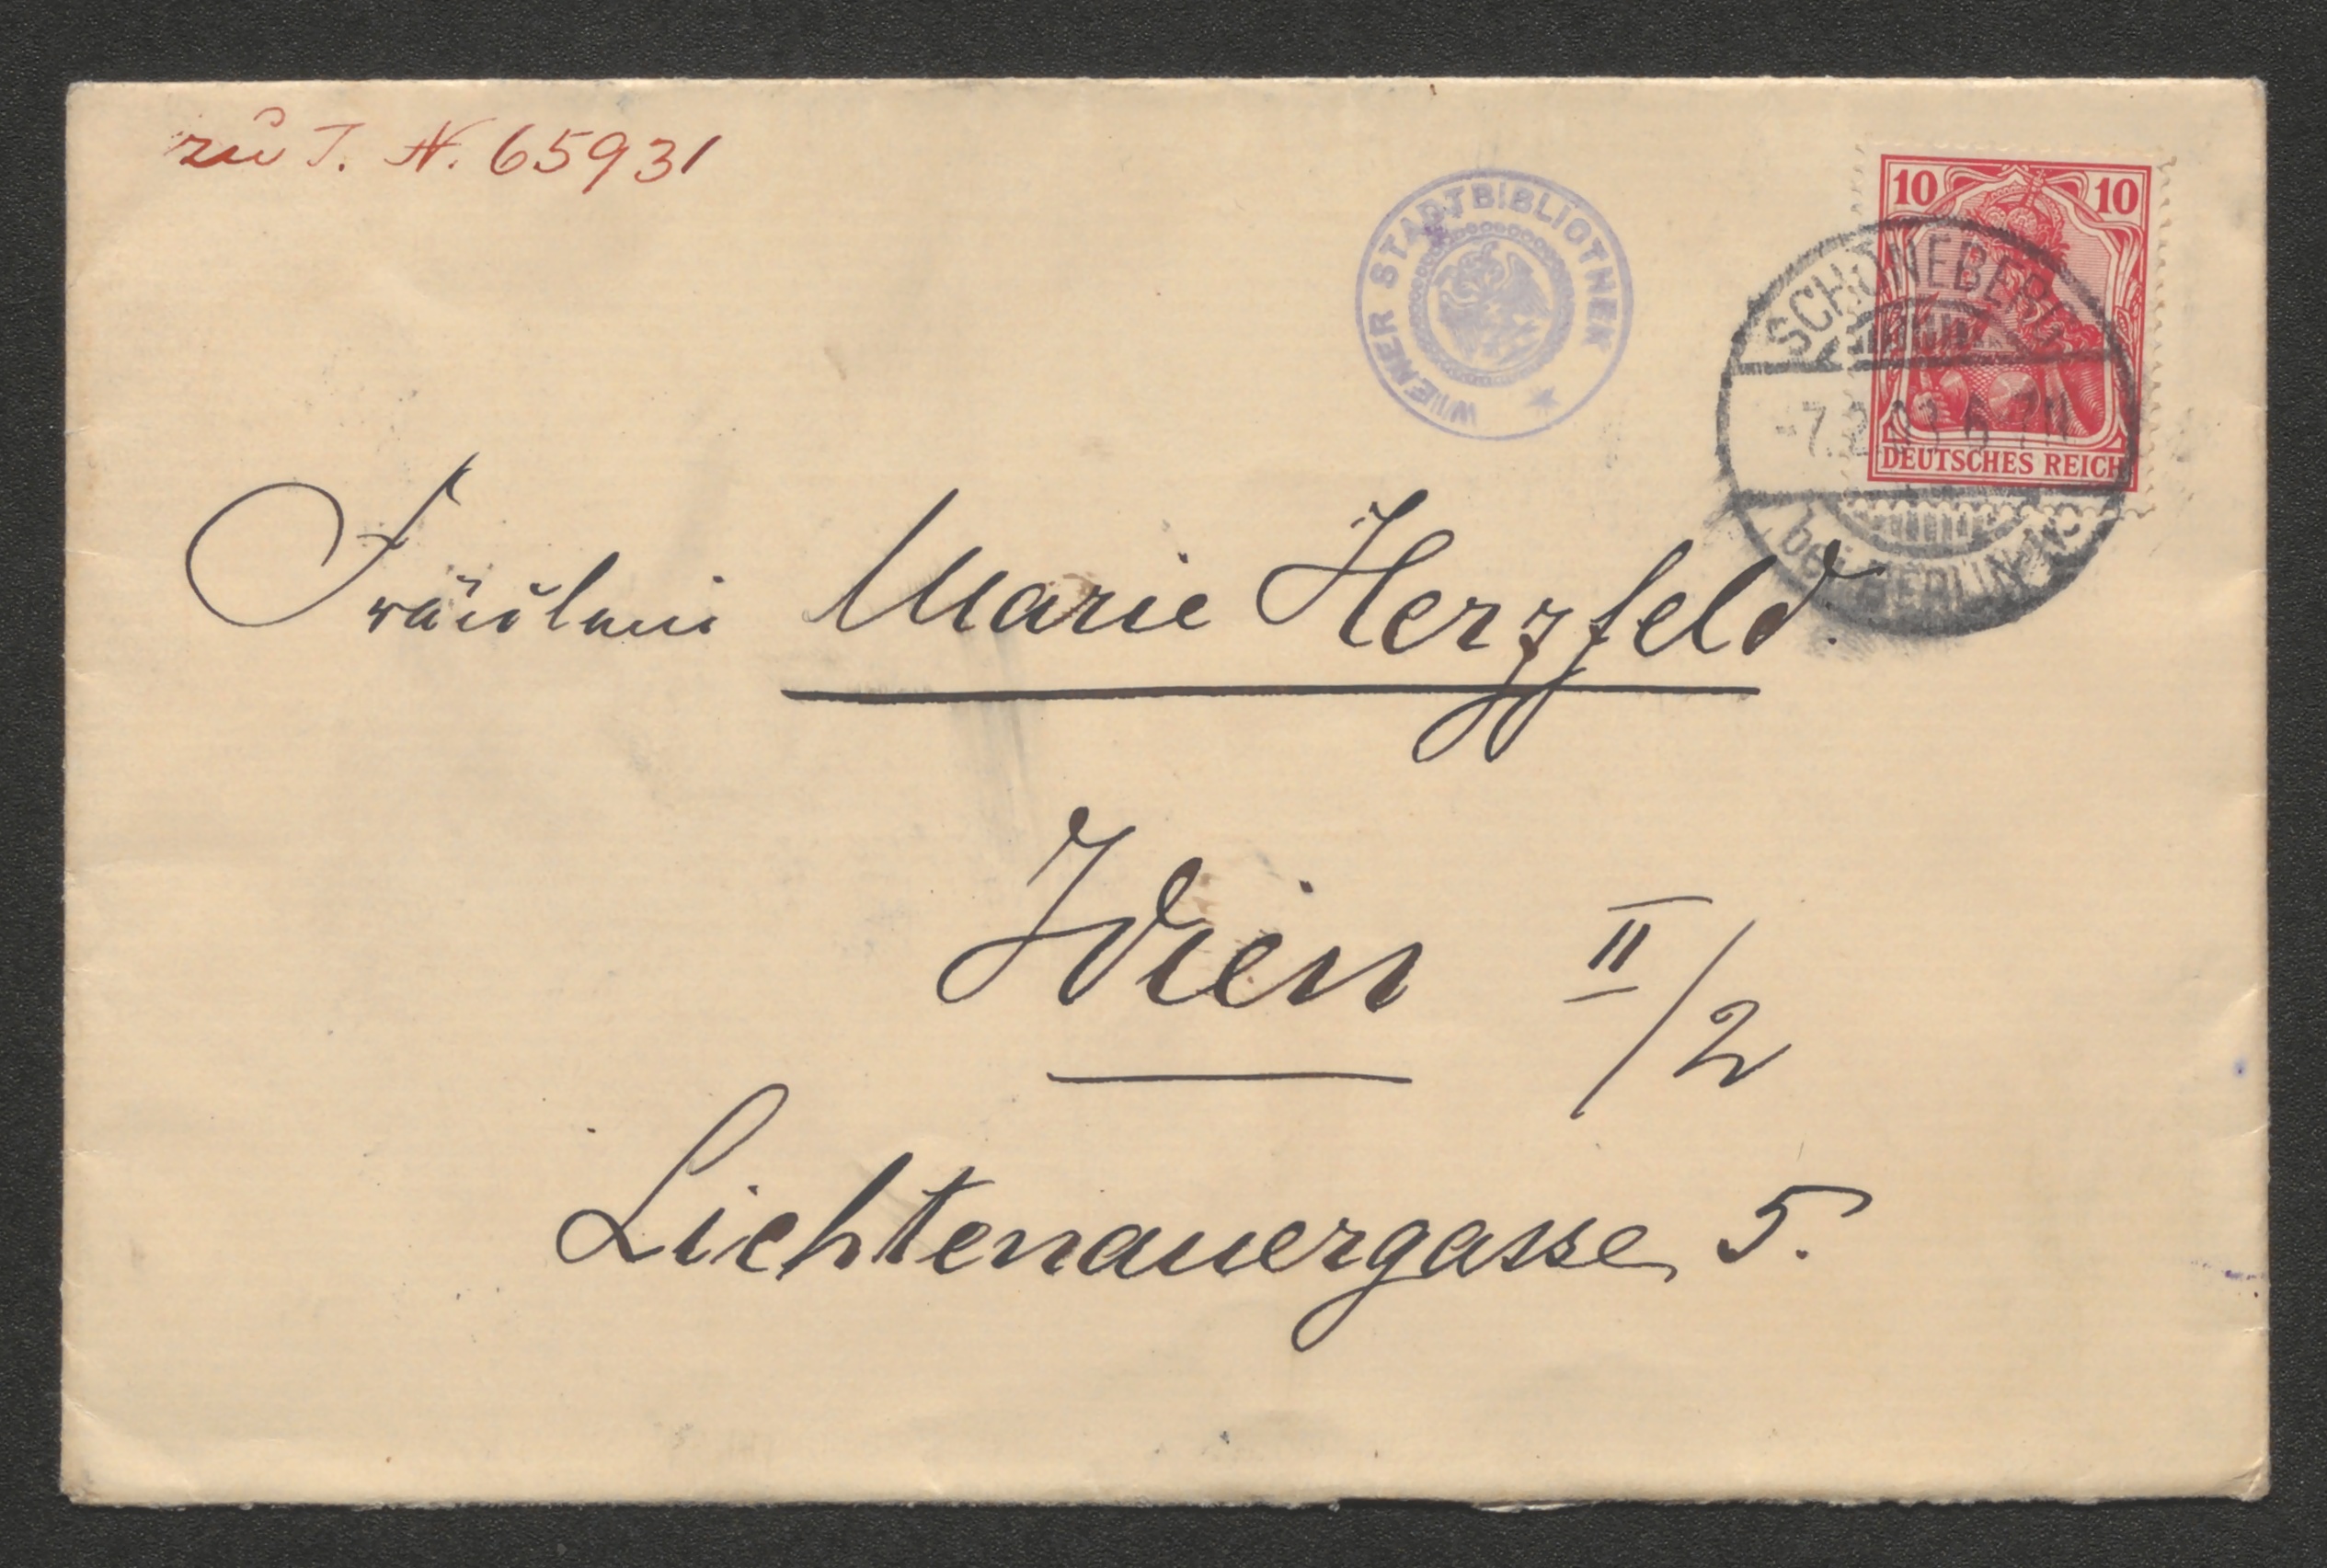 zu T. N. 65931
WIENER STADTBIBLIOTHEK
10 10
SCHÖNEBERG
-7.2.03 6-7N
DEUTSCHES REICH
bei BERLIN
Fräulein Marie Herzfeld.
Wien II/2
Lichtenauergasse 5.